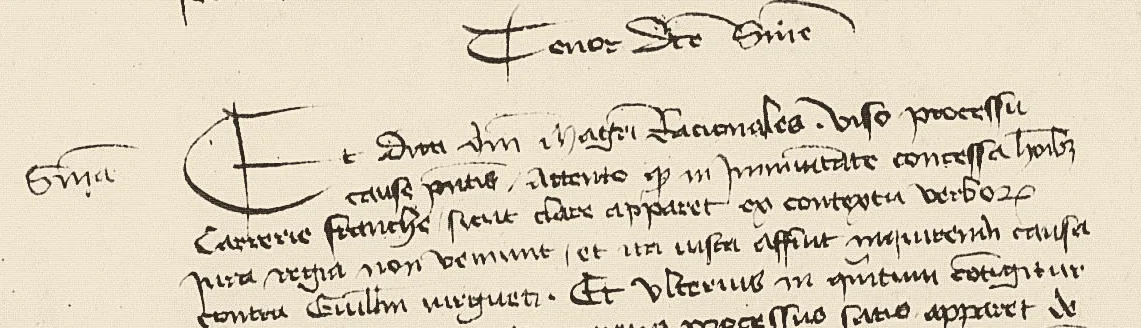 Tenor dce Snie
Et dicti dni Magri Racionales . viso processu
Snia
cause pntis , Attento qp in Immunitate concessa hoibz
Carrerie franche , sicut clare apparet ex contextu verbor
jura regia non veniunt , et ita iusta affuit inquirendi causa
contra Guillm . Et Ulterius in qntum contigitur
processus satis apparet de